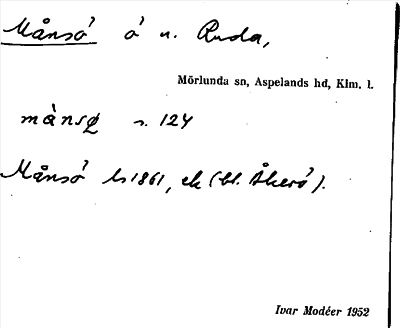 Månsö ö u. Ruda,
Mörlunda sn, Aspelands hd, Klm. l.
mànsø s. 124
Månsö ls 1861, ek (bl. Åkerö).
Ivar Modéer 1952